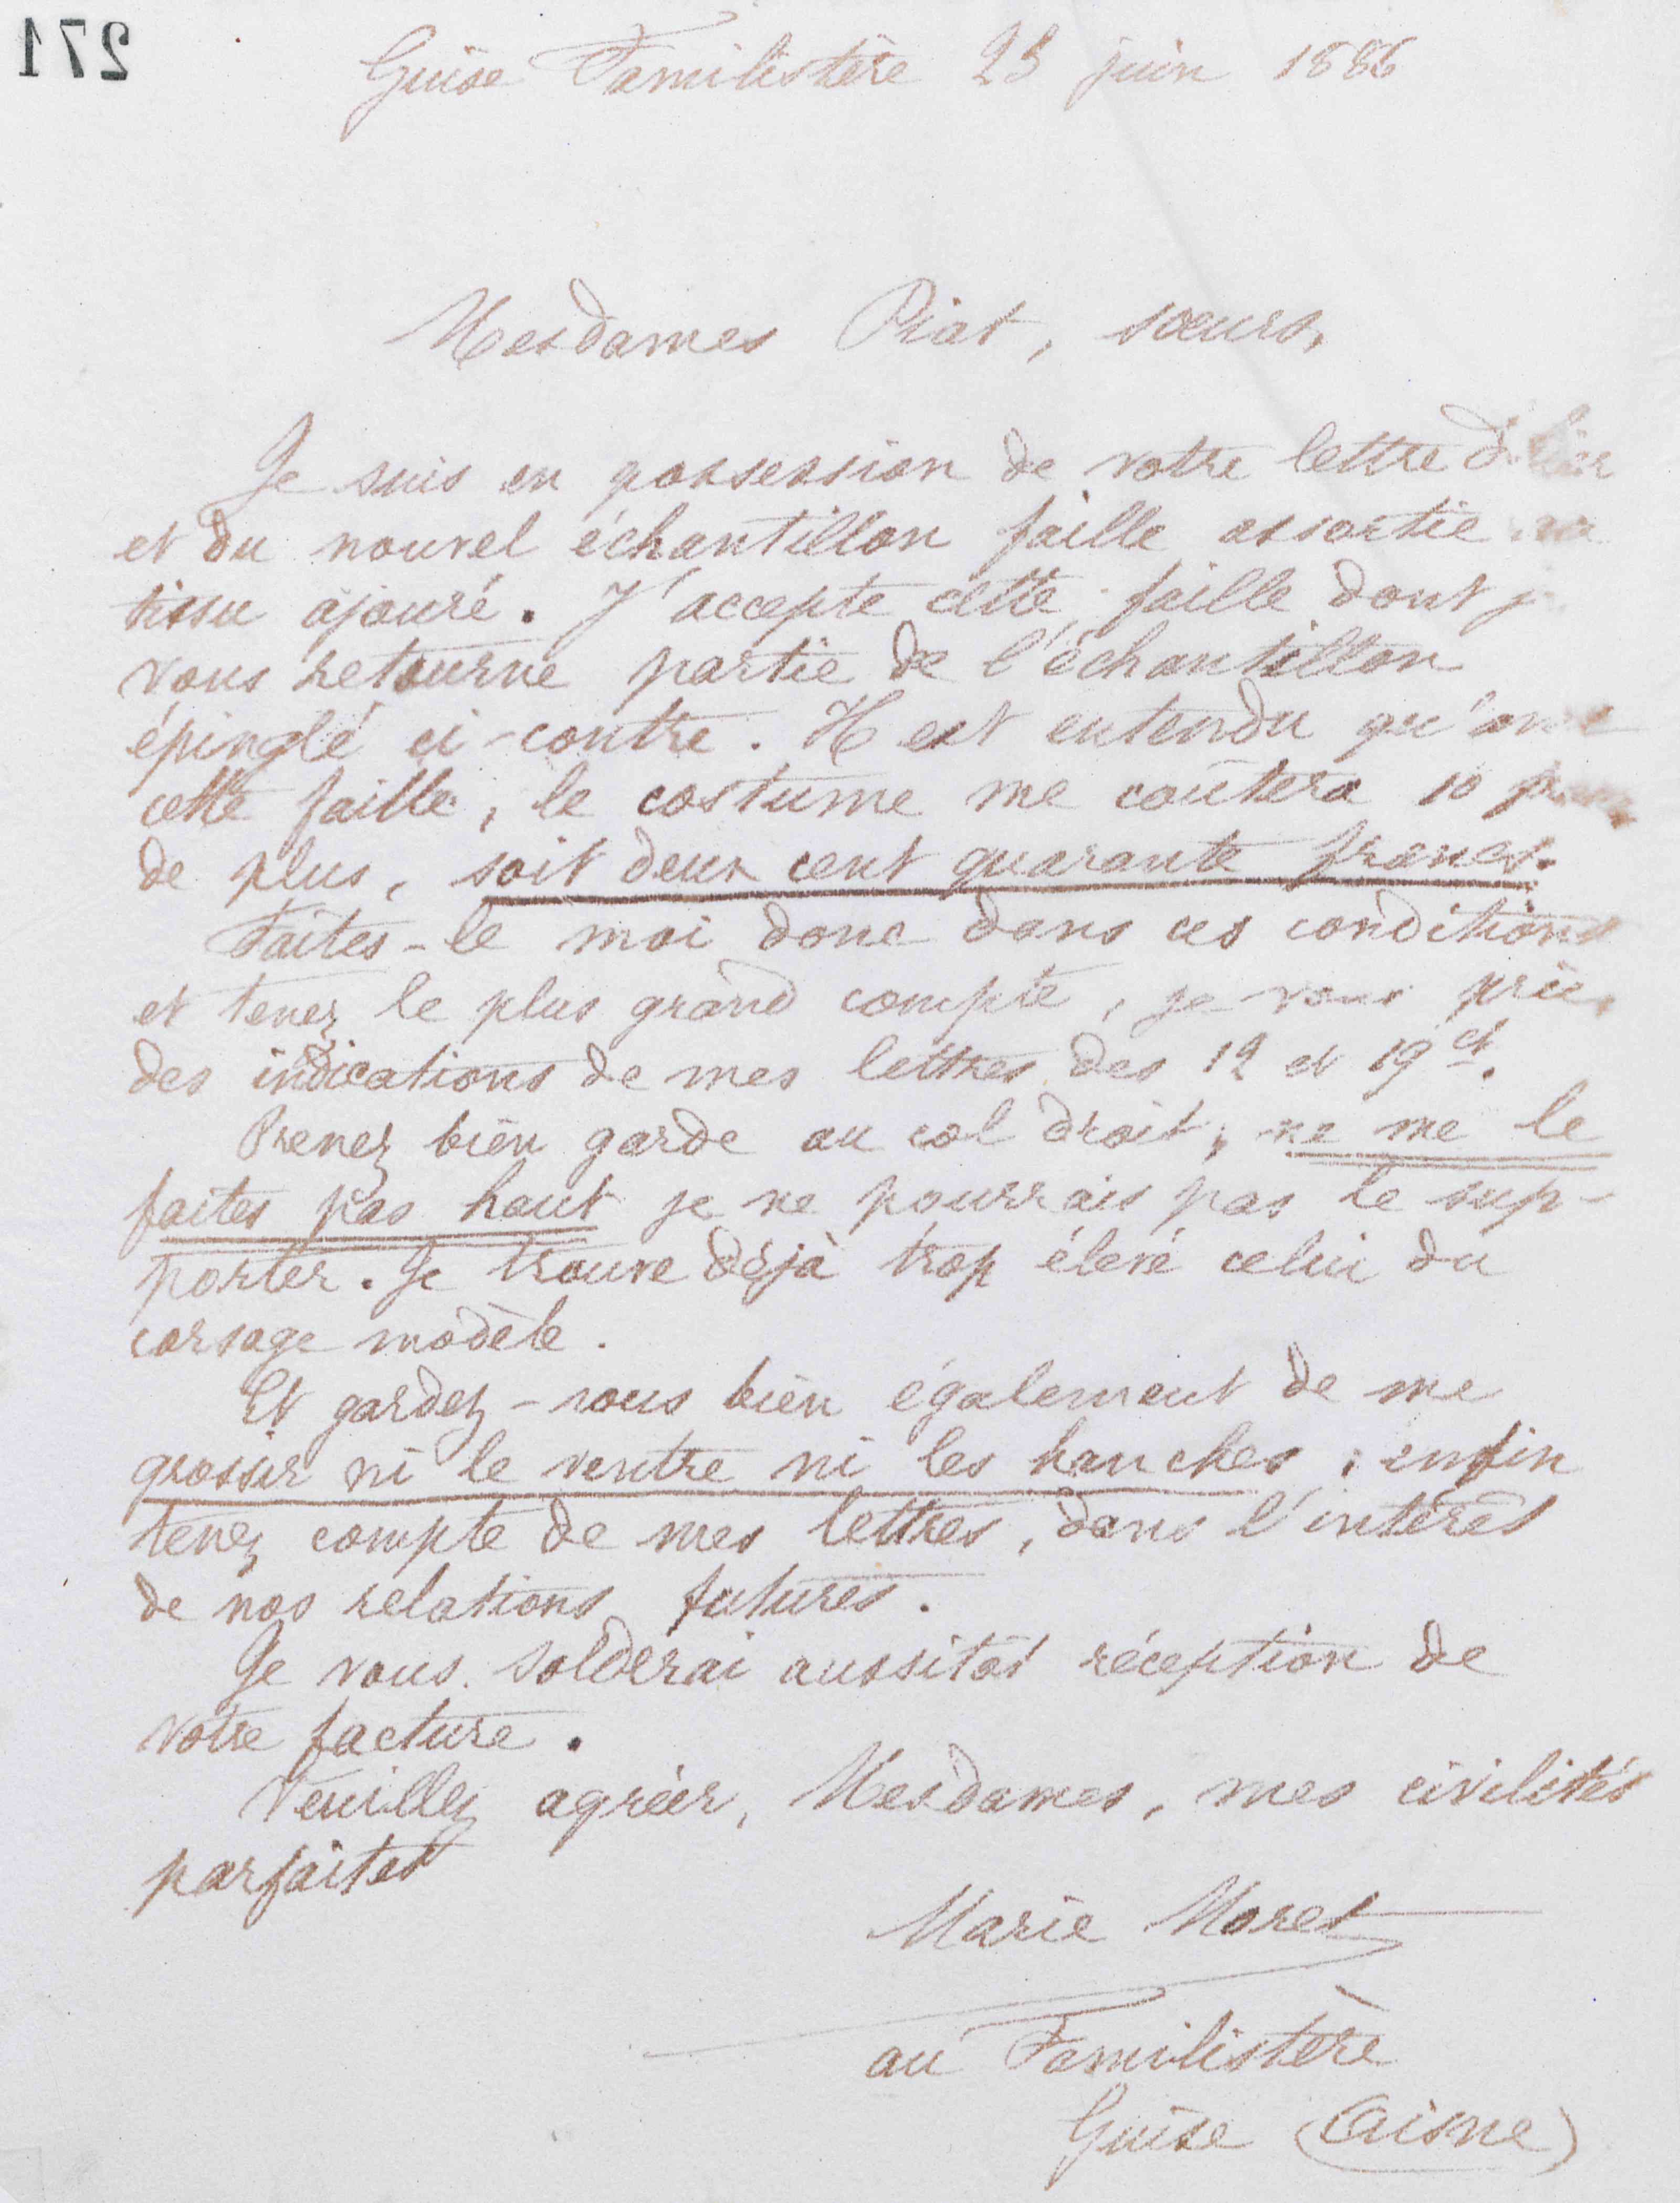 271
Guise Familistère 23 juin 1886
Mesdames Piat, sœurs,
Je suis en possession de votre lettre d'hier
et du nouvel échantillon faille assortie au
tissu ajouré. J'accepte cette faille dont
vous retourne partie de l'échantillon
épinglé ci-contre. Il est entendu
cette faille, le costume me coûtera 10
de plus, soit deux cent quarante francs.
Faites-le moi donc dans ces conditions
et tenez le plus grand compte, je vous prie,
des indications de mes lettres des 12 et 19 ct.
Prenez bien garde au col droit, ne me le
faites pas haut je ne pourrais pas le sup-
porter. Je trouve déjà trop élevé celui du
corsage modèle.
Et gardez-vous bien également de me
grossir ni le ventre ni les hanches ; enfin
tenez compte de mes lettres, dans l'intérêt
de nos relations futures.
Je vous solderai aussitôt réception de
votre facture.
Veuillez agréer, Mesdames, mes civilités
parfaites
Marie Moret
au Familistère
Guise (Aisne)